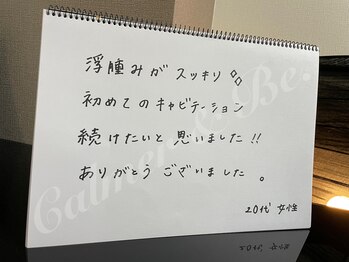 浮腫みがスッキリ✧✧
初めてのキャビテーション
続けたいと思いました!!
ありがとうございました。
20代 女性